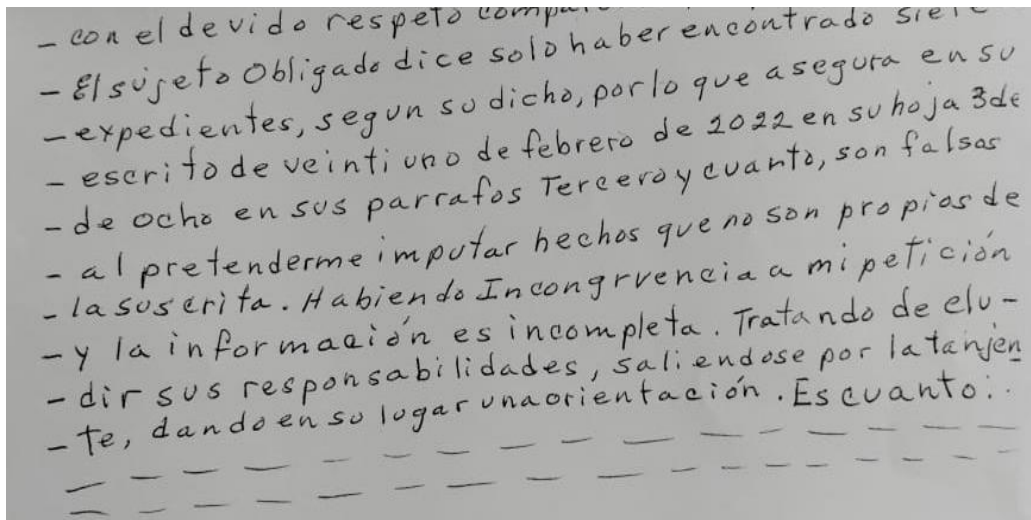 - con el devido respeto
- El sujeto Obligado dice solo haber encontrado siete
- expedientes, segun su dicho, por lo que asegura en su
- escrito de veintiuno de febrero de 2022 en su hoja 3 de
- de ocho en sus parrafos Tercero y cuanto, son falsos
- al pretenderme imputar hechos que no son propios de
- la suscrita. Habiendo Incongruencia a mi petición
- y la información es incompleta. Tratando de elu-
- dir sus responsabilidades, saliendose por la tanjen
- te, dando en su lugar una orientación. Es cuanto:.